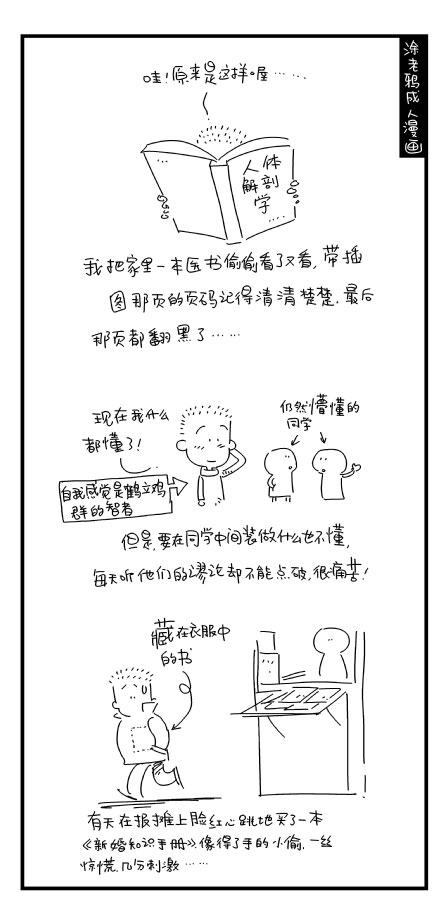 涂老鸦成人漫画
哇!原来是这样喔……
人体
解剖
学
我把家里一本医书偷偷看了又看,带插
图那页的页码记得清清楚楚,最后
那页都翻黑了……
现在我什么
都懂了!
仍然懵懂的
同学
自我感觉是鹤立鸡
群的智者
但是,要在同学中间装做什么也不懂,
每天听他们的谬论却不能点破,很痛苦!
藏在衣服中
的书
有天在报摊上脸红心跳地买了一本
《新婚知识手册》像得了手的小偷,一丝
惊慌,几分刺激……